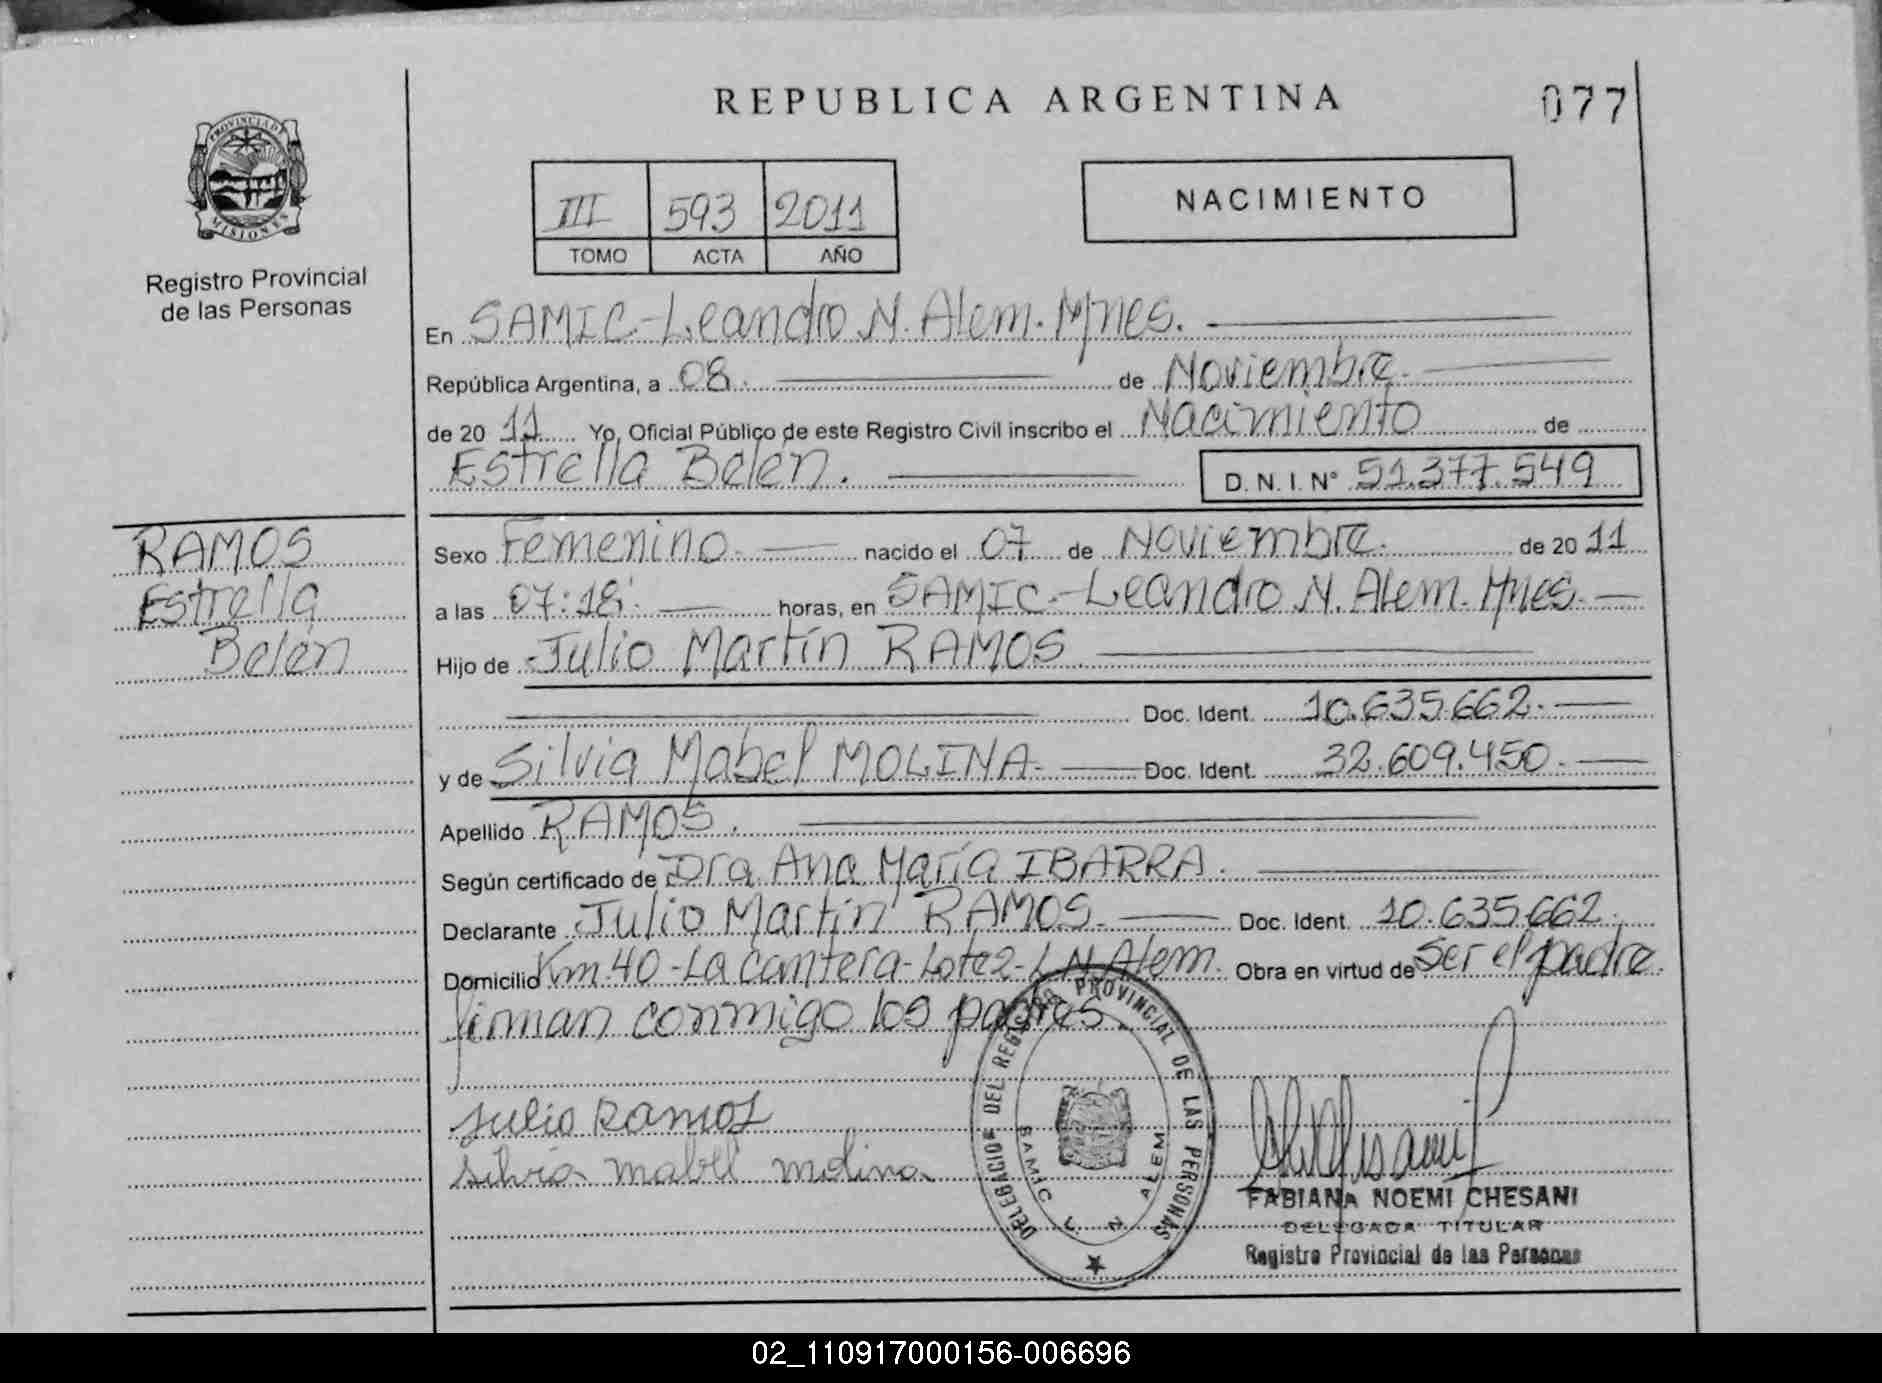 REPUBLICA ARGENTINA
077
PROVINCIA DE MISIONES
Registro Provincial
de las Personas
III 593 2011
TOMO ACTA AÑO
NACIMIENTO
En SAMIC-Leandro N. Alem. Mnes.
República Argentina, a 08. de Noviembre.
de 20 11 Yo, Oficial Público de este Registro Civil inscribo el Nacimiento de
Estrella Belén. D.N.I. N° 51.377.549
RAMOS
Estrella
Belén
Sexo Femenino. nacido el 07 de Noviembre. de 20 11
a las 07:18. horas, en SAMIC-Leandro N. Alem. Mnes.
Hijo de Julio Martín RAMOS
Doc. Ident. 10.635.662.
y de Silvia Mabel MOLINA. Doc. Ident. 32.609.450.
Apellido RAMOS.
Según certificado de Dra Ana María IBARRA.
Declarante Julio Martín RAMOS. Doc. Ident. 10.635.662.
Domicilio Km.40-La Cantera-Lote2-L.N.Alem. Obra en virtud de Ser el padre.
firman conmigo los padres.
Julio Ramos
silvia mabel molina
DELEGACION DEL REGISTRO PROVINCIAL DE LAS PERSONAS
SAMIC L. N ALEM
FABIANA NOEMI CHESANI
DELEGADA TITULAR
Registro Provincial de las Personas
02_110917000156-006696